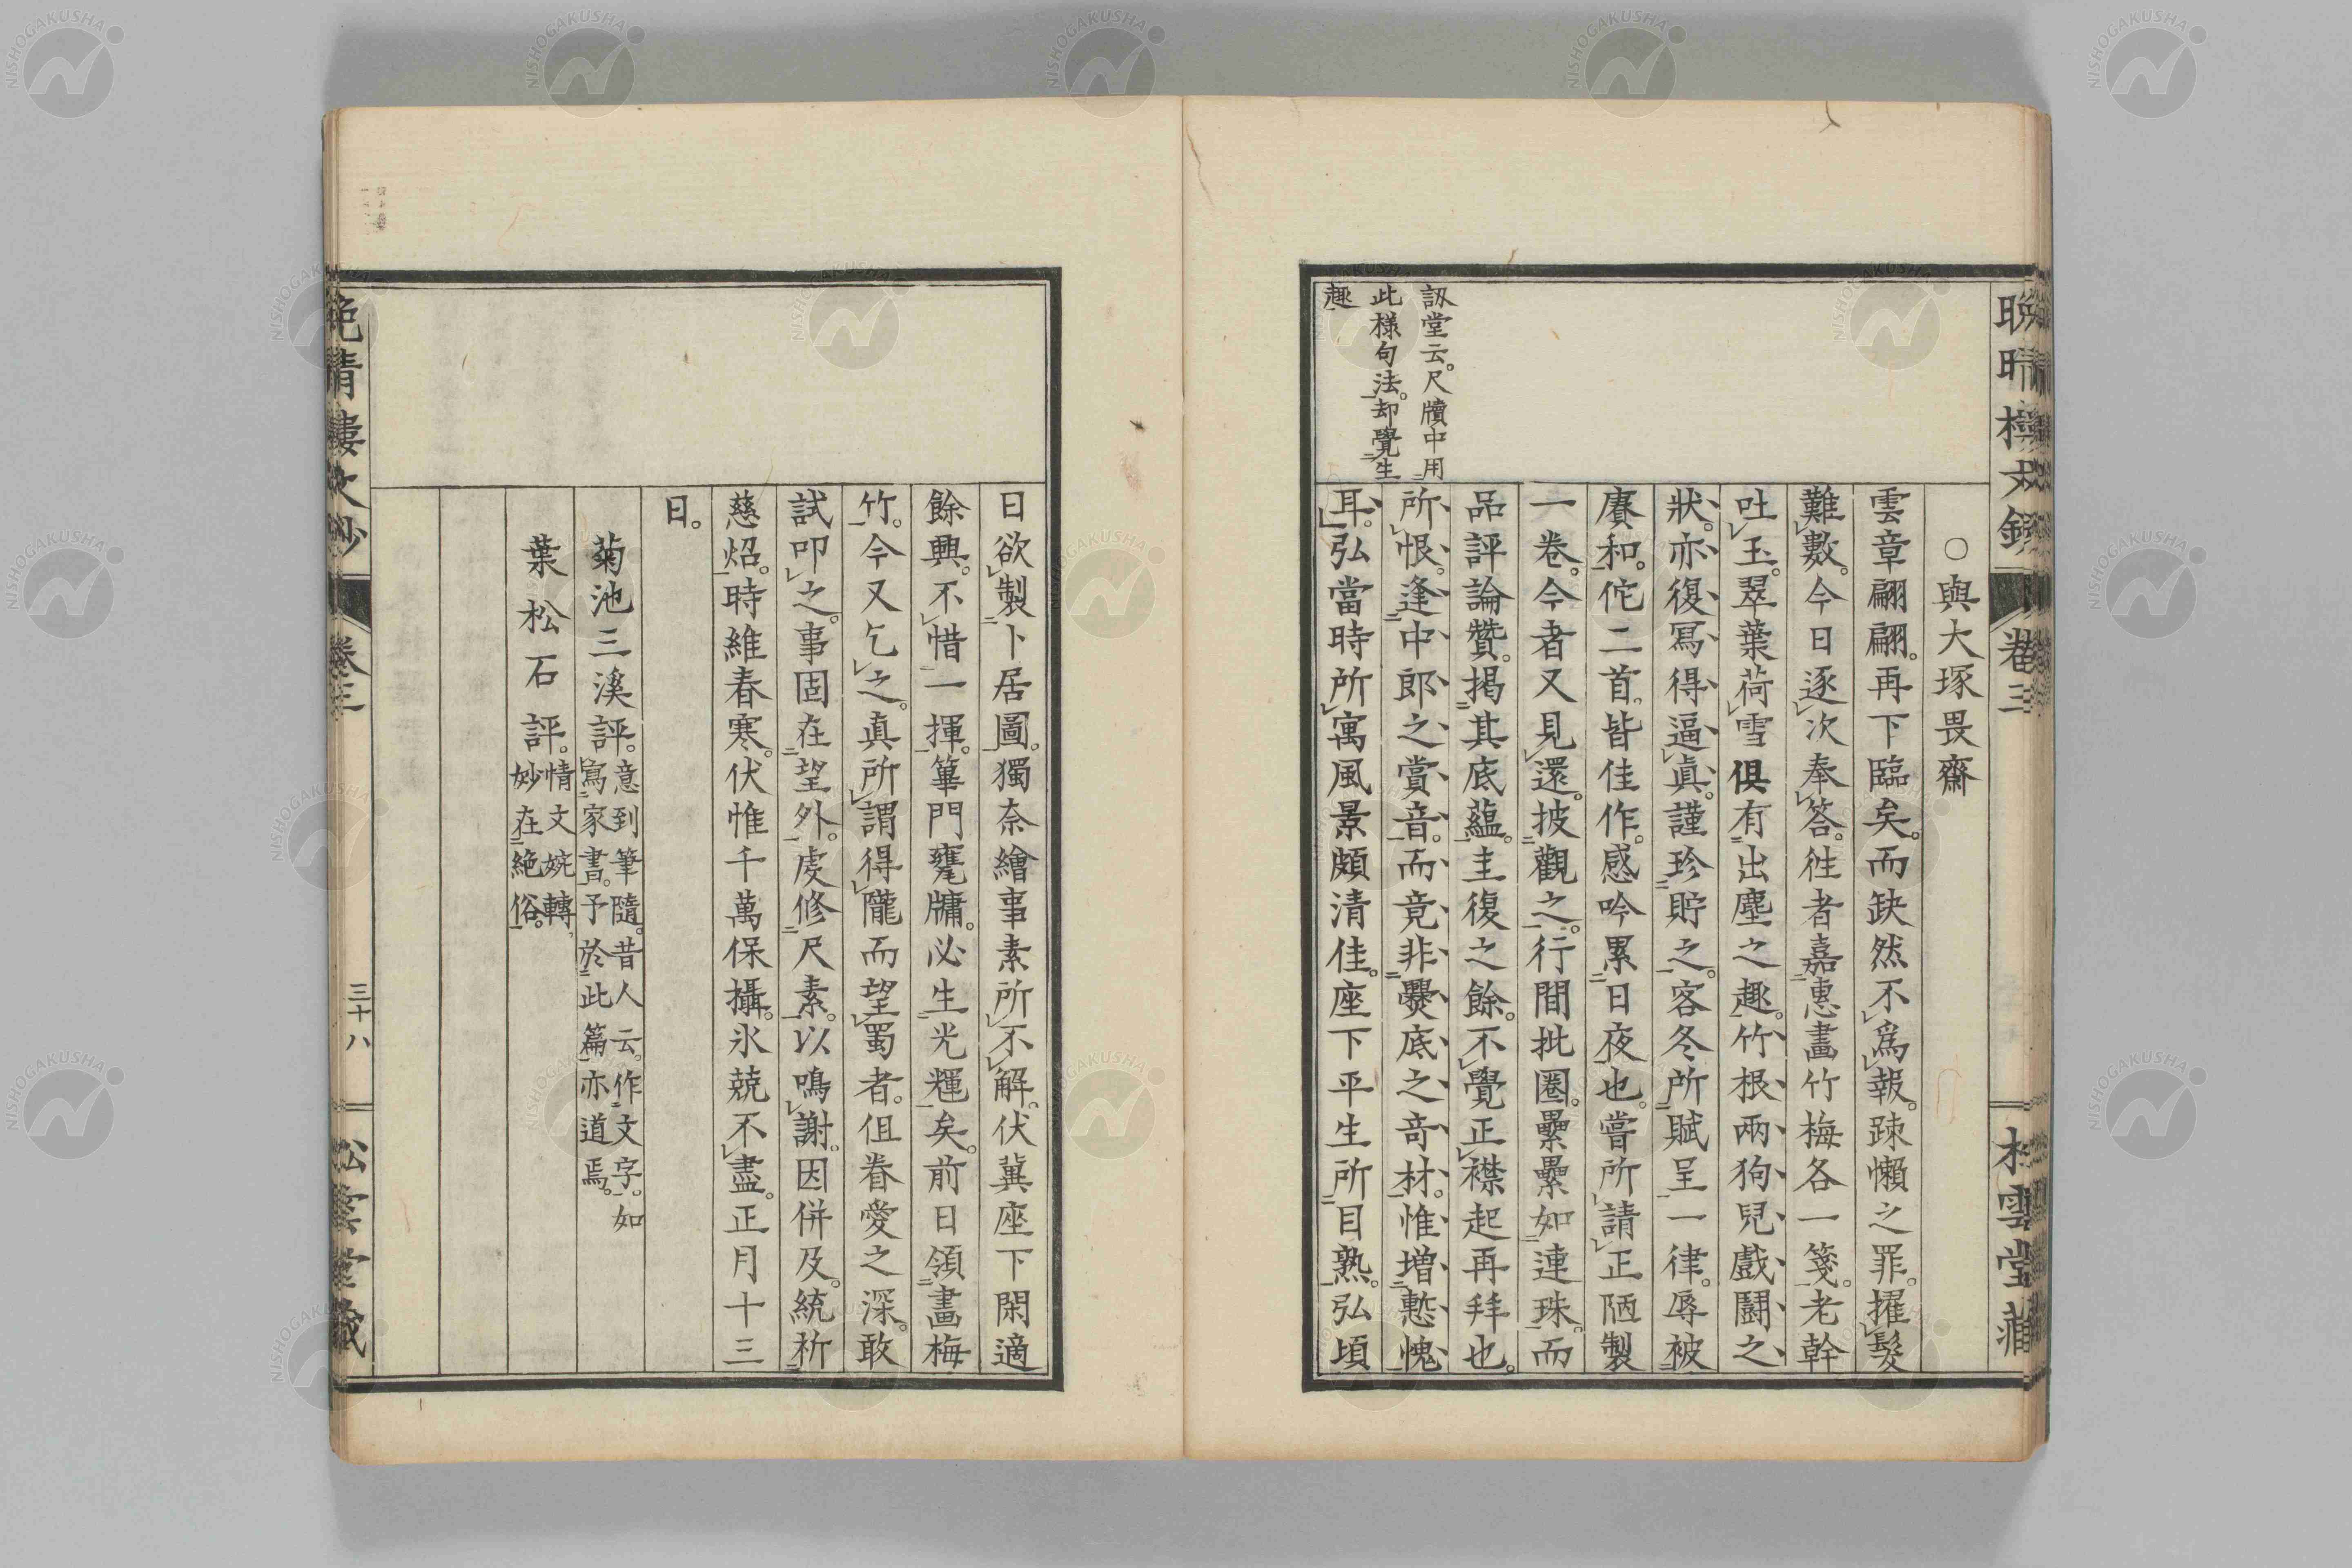 ○與大塚畏齋
雲章翩翩。再下臨矣。而缺然不爲報。疎懶之罪。擢髮
難數。今日逐次奉答。徃者嘉惠畫竹梅各一箋。老幹
吐玉。翠葉荷雪。俱有出塵之趣。竹根兩狗兒戲鬪之
狀。亦復寫得逼眞。謹珍貯之。客冬所賦呈一律。辱被
賡和。佗二首。皆佳作。感吟累日夜也。嘗所請正陋製
一卷。今者又見還。披觀之。行間批圈。纍纍如連珠。而
品評論贊。揭其底蘊。圭復之餘。不覺正襟起再拜也。
所恨。逢中郎之賞音。而竟非爨底之奇材。惟增慙愧
耳。弘當時所寓風景頗清佳。座下平生所目熟。弘頃
訒堂云。尺牘中用
此樣句法。却覺生
趣
卷三
日欲製卜居圖。獨奈繪事素所不解。伏冀座下閑適
餘興。不惜一揮。篳門甕牖。必生光輝矣。前日領畫梅
竹。今又乞之。真所謂得隴而望蜀者。但眷愛之深。敢
試叩之。事固在望外。虔修尺素。以鳴謝。因併及。統祈
慈炤。時維春寒。伏惟千萬保攝。氷兢不盡。正月十三
日。
菊池三溪評。意到筆隨。昔人云。作文字。如
寫家書。予於此篇亦道焉。
葉松石評。情文婉轉,
妙在絕俗。
晩晴樓文鈔
卷三
三十八
松雲堂藏